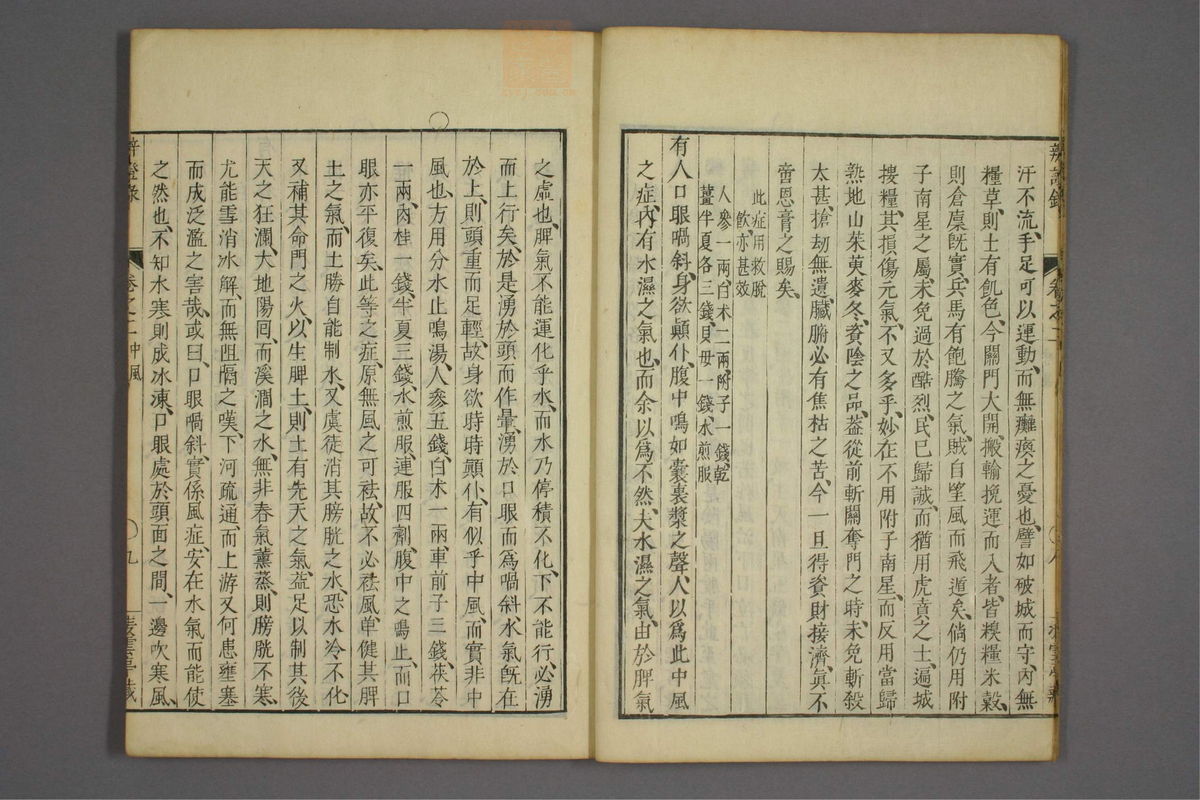 汗不流、手足可以運動、而無癱瘓之憂也、譬如破城而守、內無
糧草、則士有飢色、今關門大開、搬輸挽運而入者、皆糗糧米穀、
則倉廩旣實、兵馬有飽騰之氣、賊自望風而飛遁矣、倘仍用附
子南星之屬、未免過於酷烈、民已歸誠、而猶用虎賁之士、遍城
搜糧、其損傷元氣、不又多乎、妙在不用附子南星、而反用當歸
熟地山茱萸麥冬、資陰之品、蓋從前斬關奪門之時、未免斬殺
太甚、搶刼無遺、臟腑必有焦枯之苦、今一旦得資財接濟、眞不
啻恩膏之賜矣、
此症用救脫
飲、亦甚效
人參一兩白朮二兩附子一錢、乾
薑半夏各三錢、貝母一錢、水煎服
有人口眼喎斜、身欲顚仆、腹中鳴如囊裹漿之聲、人以爲此中風
之症、內有水濕之氣也、而余以爲不然、夫水濕之氣、由於脾氣
辨證錄
卷之二
八
之虛也、脾氣不能運化乎水、而水乃停積不化、下不能行、必湧
而上行矣、於是湧於頭而作暈、湧於口眼而爲喎斜、水氣旣在
於上、則頭重而足輕、故身欲時時顚仆、有似乎中風、而實非中
風也、方用分水止鳴湯、人參五錢、白朮一兩、車前子三錢、茯苓
一兩、肉桂一錢、半夏三錢、水煎服、連服四劑、腹中之鳴止、而口
眼亦平復矣、此等之症、原無風之可袪、故不必袪風、單健其脾
土之氣、而土勝自能制水、又虞徒消其膀胱之水、恐水冷不化、
又補其命門之火、以生脾土、則土有先天之氣、益足以制其後
天之狂瀾、大地陽囘、而溪澗之水、無非春氣薰蒸、則膀胱不寒、
尤能雪消冰解、而無阻隔之嘆、下河疏通、而上游又何患壅塞
而成泛濫之害哉、或曰、口眼喎斜、實係風症、安在水氣而能使
之然也、不知水寒則成冰凍、口眼處於頭面之間、一邊吹寒風、
辨證錄
卷之二中風
九